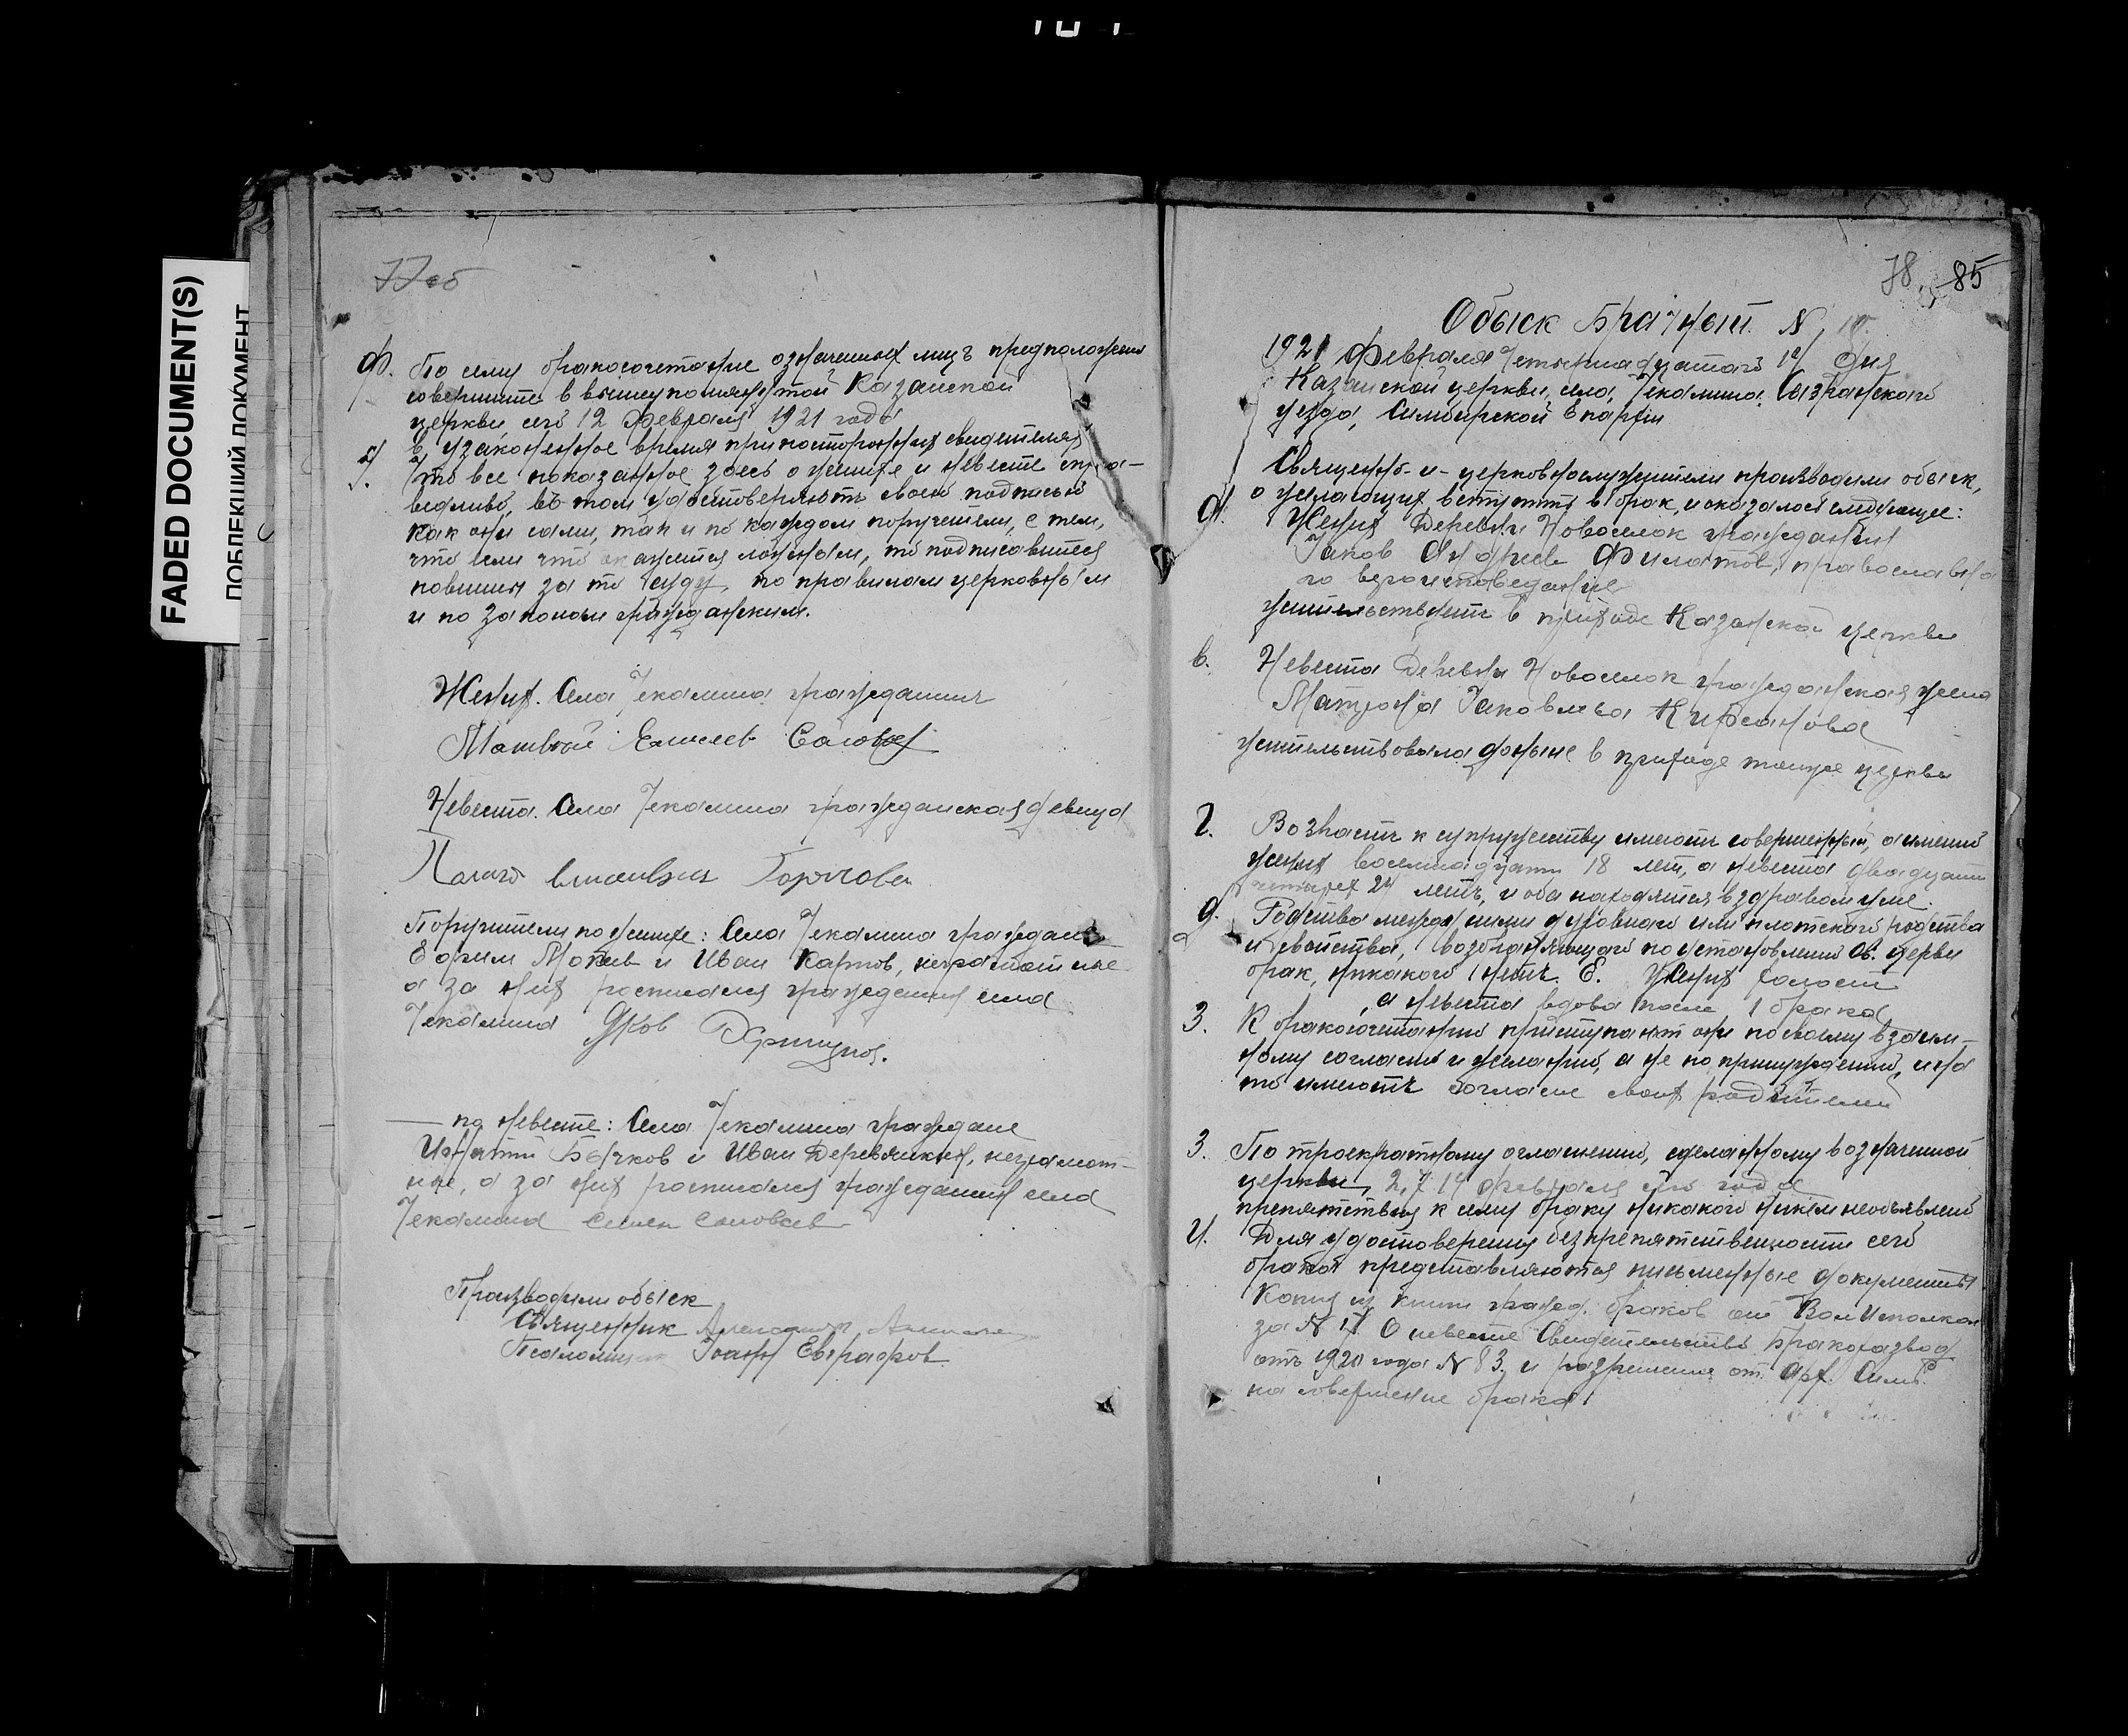 FADED DOCUMENT(S)
ПОБЛЕКШИЙ ДОКУМЕНТ
77об
Ф. По сему бракосочетание означенных лицъ предположено
совершить в вышеупомянутой Казанской
церкви, сего 12 февраля 1921 года
в узаконенное время при посторонних свидетелях
Что все показанное здесь о женихе и невесте спра-
ведливо, въ том удостоверяютъ своею подписью
как они сами, так и по каждом поручители, с тем,
что если что окажется ложным, то подписавшиеся
повинны за то суду, по правилам церковным
и по законам гражданским.
Жених. Села Чекалина гражданин
Матвей Елисеев
Невеста. Села Чекалина гражданская девица
Горчова
Поручители по женихе: Села Чекалина граждане
Ефрем Мокеев и Иван Карпов, неграмотные
а за них росписался гражданин села
Чекалина Яков
— по невесте: Села Чекалина граждане
Игнатий Бычков и Иван Деревянкин, неграмот-
ные, а за них росписался гражданин села
Чекалина Семен Соловьев
Производили обыск
Священник Александр
Псаломщик Иоанн Евграфов
78 85
Обыск Брачный N 10.
1921 Февраля четырнадцатого 14 дня
Казанской церкви, села, Чекалина Сызранского
уезда, Симбирской Епархии
Священно-и-церковнослужители производили обыск,
о желающих вступить в брак, и оказалось следующее:
а. Жених Деревни Новоселок гражданин
Иаков Андреев Филатов, православна
го вероисповедание
жительствует в приходе Казанской церкви
в. Невеста Деревни Новоселок гражданская жена
Матрона Иаковлева Кирсанова
жительствовала доныне в приходе тойже церкви
г. Возрастъ к супружеству имеютъ совершенный, а именно
жених восемнадцати 18 лет, а невеста двадцати
четырех 24 летъ, и оба находятся в здравом уме.
д. Родства между ними духовного или плотского родства
и свойства, возбраняющаго по установлению Св. церкви
брак, никакого нетъ. Е. Жених холост
, а невеста вдова после 1 брака
З. К бракосочетанию приступают они по своему взаим-
ному согласию и желанию, а не по принуждению, и на
то имеютъ согласие своих родителей
З. По троекратному оглашению, сделанному в означенной
церкви, 2, 7 14 февраля сего года
препятствия к сему браку никакого никем необъявлено
И. Для удостоверения безпрепятственности сего
брака представляются письменные документы
Копия из книги гражд. браков от ВолИсполкома
за N О невесте Свидетельство Бракоразвод
отъ 1920 года N 83. и разрешения от Арх. Симб.
на совершение брака